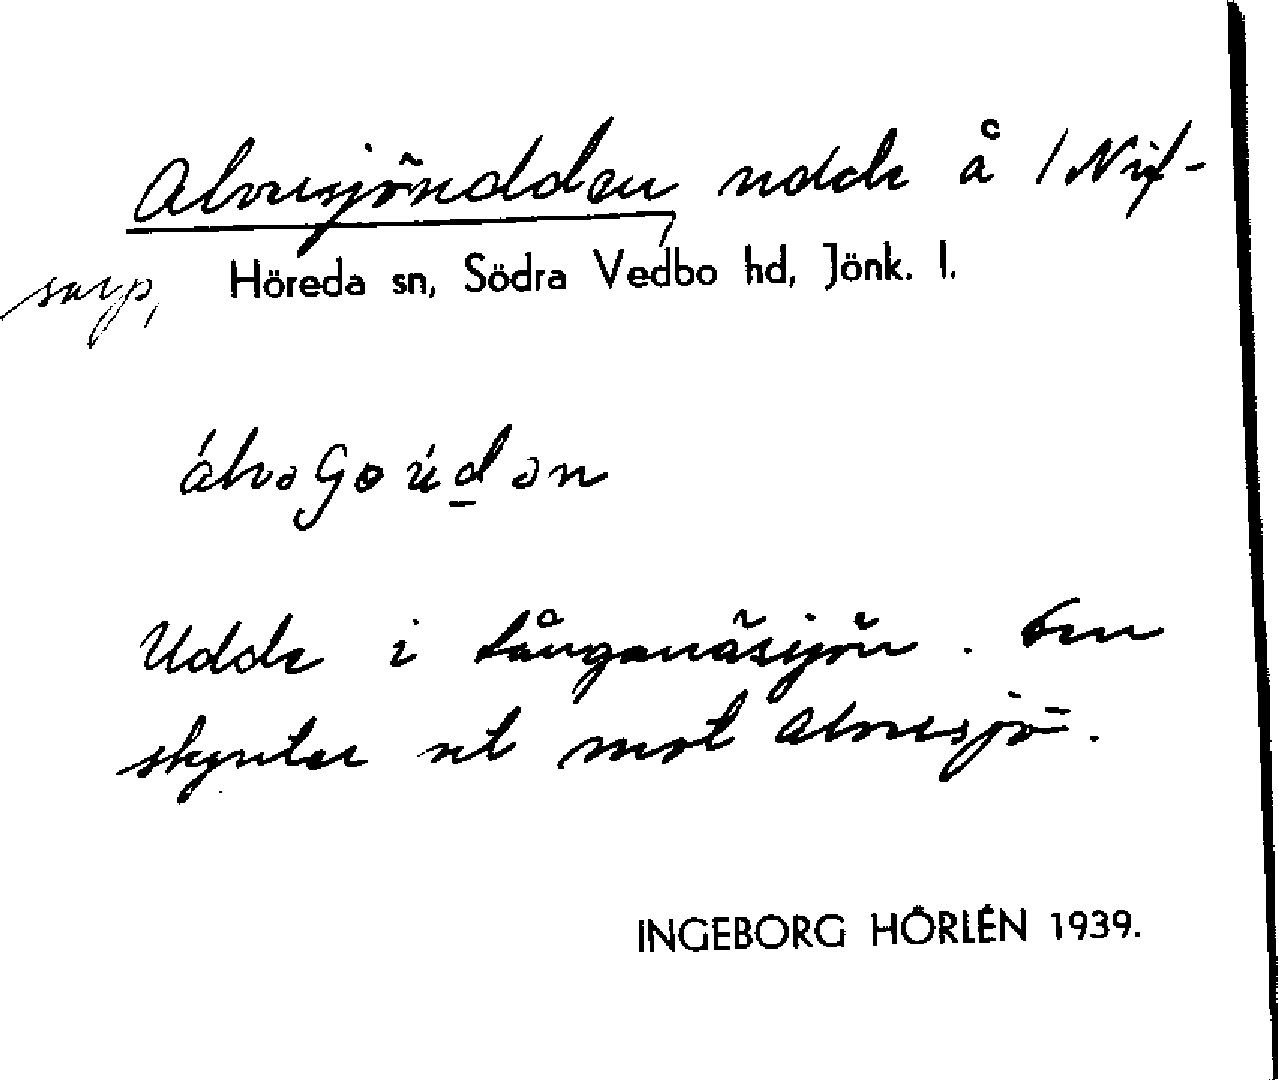 Alvesjöudden, udde å /Nif-
sarp, Höreda sn, Södra Vedbo hd, Jönk. l.
Udde i Långanäsjön. Den
skjuter ut mot Alvesjö.
INGEBORG HÖRLÉN 1939.